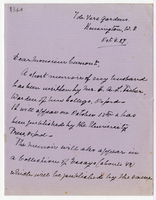 7 de Vere Gardens,
Kensington, W. 8
Oct. 6. 27
Dear Monsieur Cumont.
A short memoir of my husband
has been written by Mr. H. A. L. Fisher,
Warden of New College, Oxford –
It will appear on October 13th & has
been published by the University
Press, Oxford –
The memoir will also appear in
a Collection of Essays, shortly to
which will be published by the same